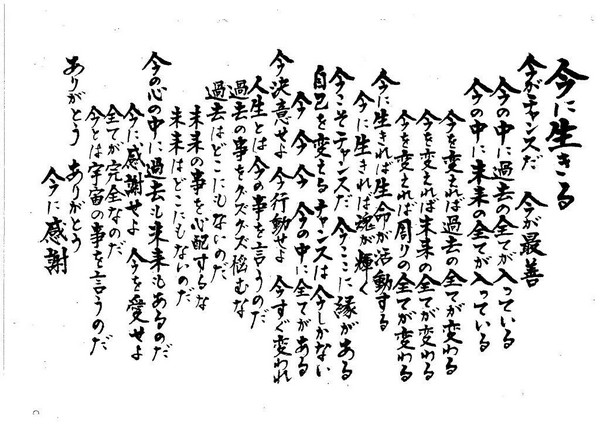 今に生きる
今がチャンスだ　今が最善
今の中に過去の全てが入っている
今の中に未来の全てが入っている
今を変えれば過去の全てが変わる
今を変えれば未来の全てが変わる
今を変えれば周りの全てが変わる
今に生きれば生命が活動する
今に生きれば魂が輝く
今こそチャンスだ　今ここに縁がある
自己を変えるチャンスは　今しかない
今　今　今　今の中に全てがある
今決意せよ　今行動せよ　今すぐ変われ
人生とは今の事を言うのだ
過去の事をグズグズ悩むな
過去はどこにもないのだ
未来の事を心配するな
未来はどこにもないのだ
今の心の中に過去も未来もあるのだ
今に感謝せよ　今を愛せよ
全てが完全なのだ
今とは宇宙の事を言うのだ
ありがとう　ありがとう
今に感謝